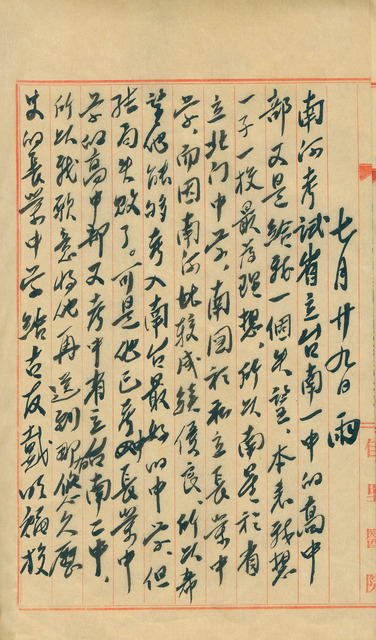 七月廿九日 雨
南河考試省立台南一中的高中
部又是給我一個失望。本来我想
一子一校最為理想，所以南星於省
立北门中学，南圖於私立長榮中
学，而因南河比較成績優良，所以希
望他能够考入南台最好的中学，但
结局失敗了。可是他已考过長榮中
学的高中部又考中省立台南二中，
所以我歡意将他再送到那悠久歷
史的長榮中学给古友戴明福校
佳里醫院